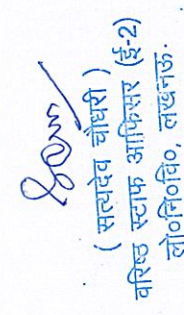 ( सत्यदेव चौधरी )
वरिष्ठ स्टाफ आफिसर (ई-2)
लो०नि०वि०, लखनऊ.